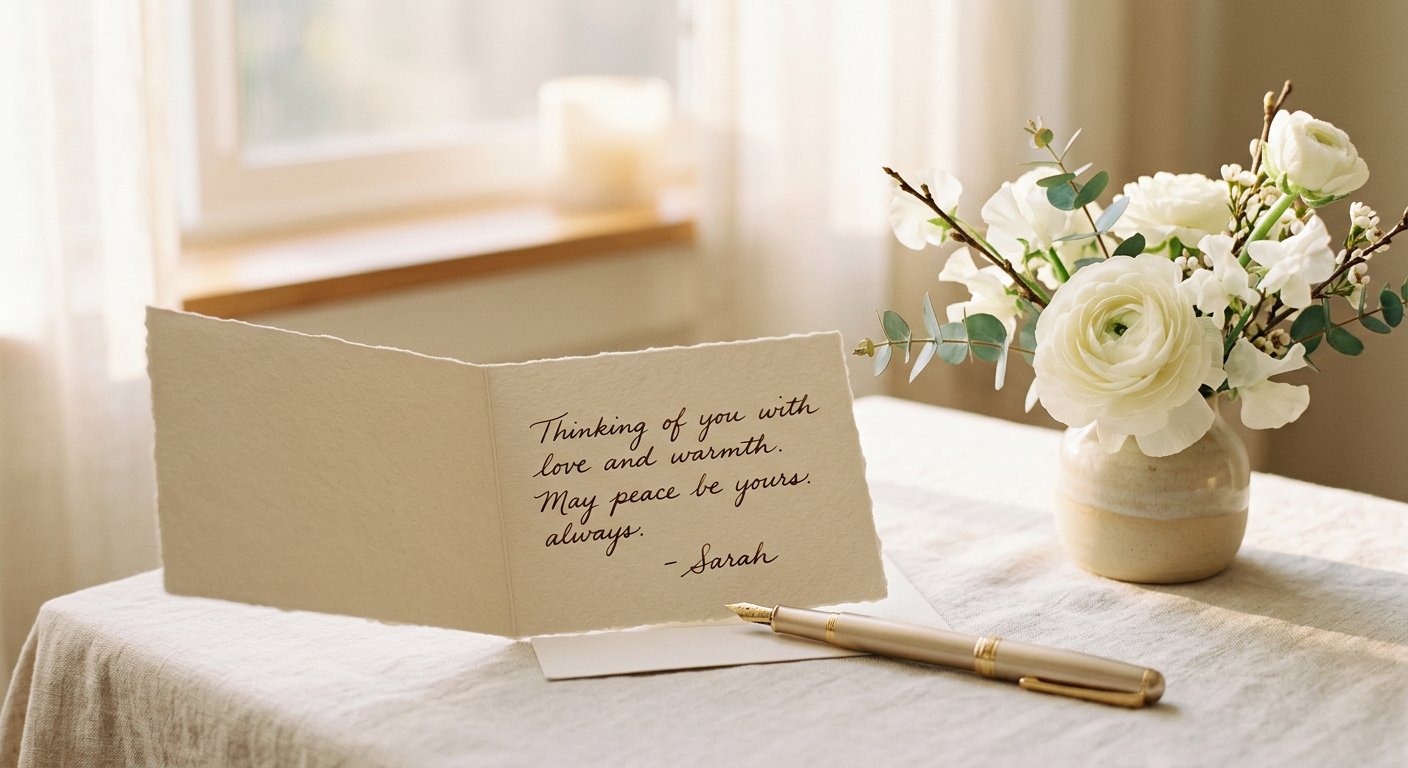 Thinking of you with
love and warmth.
May peace be yours.
always.
- Sarah